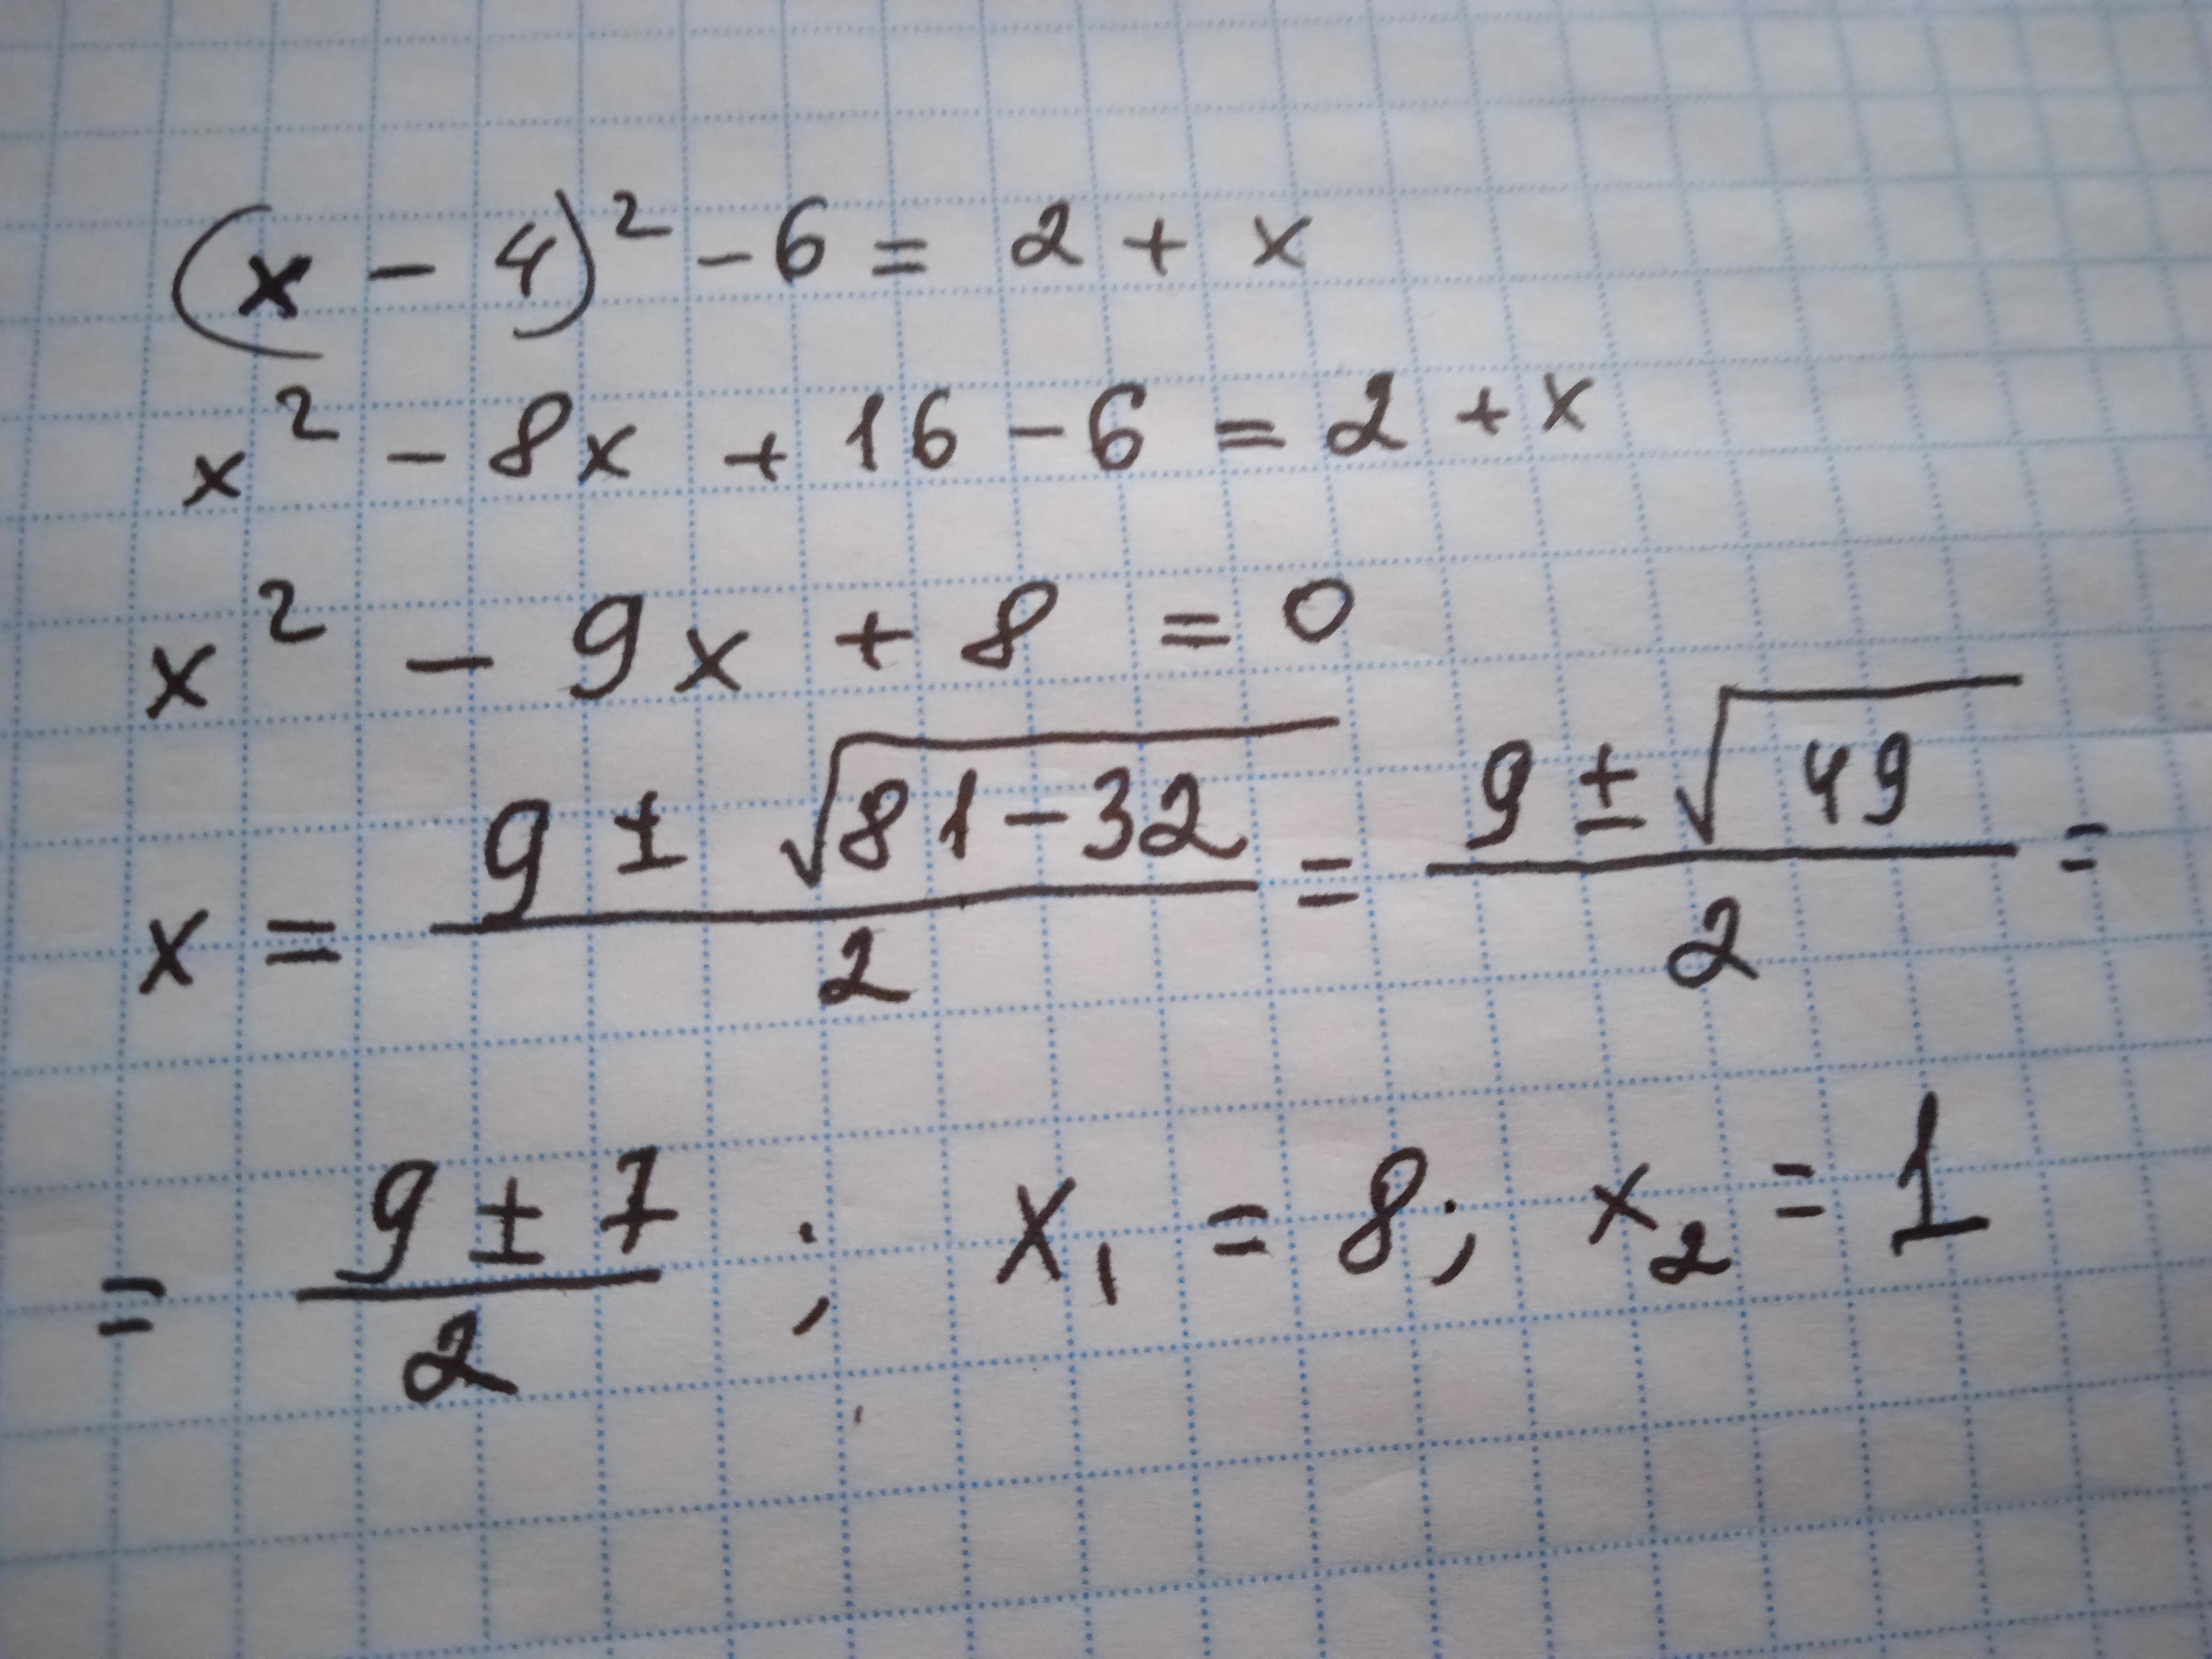 (x - 4)² - 6 = 2 + x
x² - 8x + 16 - 6 = 2 + x
x² - 9x + 8 = 0
x = \frac{9 ± \sqrt{81 - 32}}{2} = \frac{9 ± \sqrt{49}}{2} =
= \frac{9 ± 7}{2} ; x₁ = 8; x₂ = 1